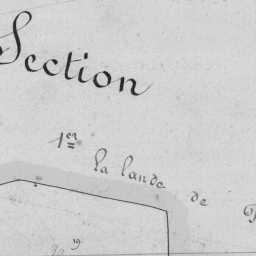 Section
1er
la lande de